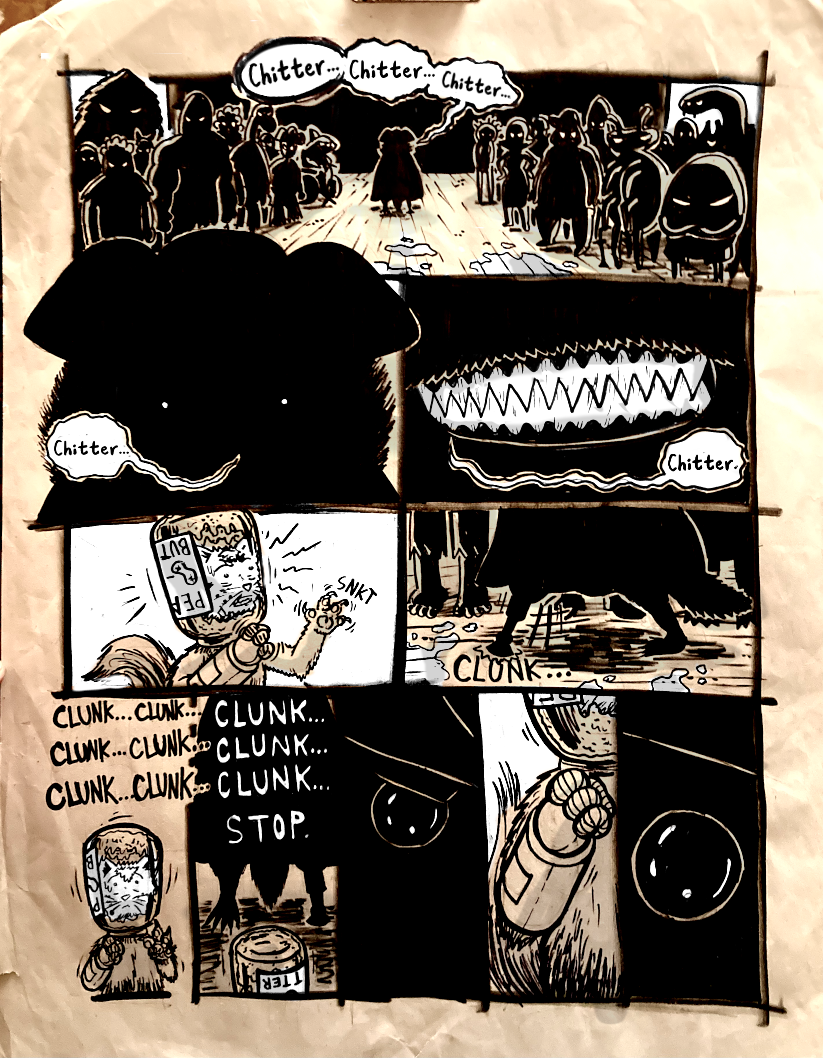 Chitter...
Chitter...
Chitter...
Chitter...
Chitter.
PEA
BUT
SNKT
CLUNK...
CLUNK...CLUNK...
CLUNK...
CLUNK...CLUNK...
CLUNK...
CLUNK...CLUNK...
CLUNK...
STOP.
TTER